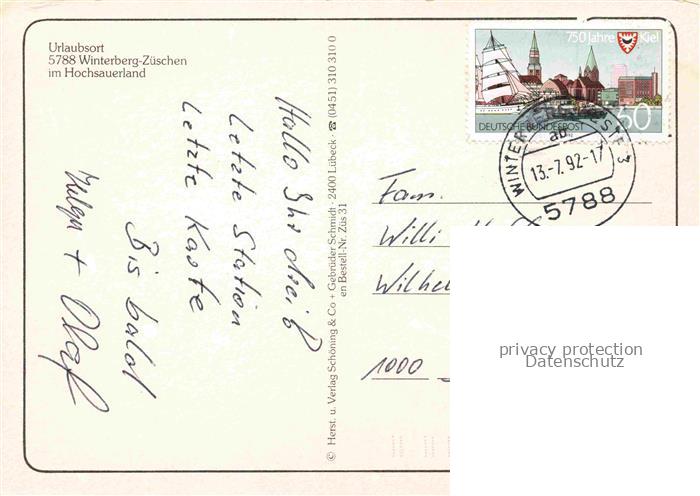 Urlaubsort
5788 Winterberg-Züschen
im Hochsauerland
Hallo Ihr drei!
letzte Station
letzte Karte
Bis bald
+ Olaf
© Herst. u. Verlag Schöning & Co + Gebrüder Schmidt · 2400 Lübeck · ☎ (0451) 310 310 0
en Bestell-Nr. Züs 31
750 Jahre Kiel
60
DEUTSCHE BUNDESPOST
ab
13.-7.92-17
5788
Fam.
Willi
1000
privacy protection
Datenschutz